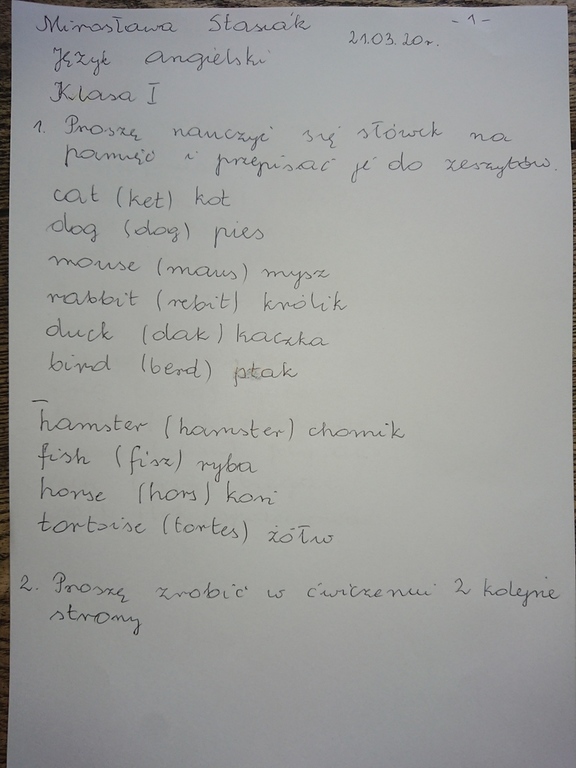 Mirosława Stasiak
21.03.20r.
- 1 -
Język angielski
Klasa I
1. Proszę nauczyć się słówek na
pamięć i przepisać je do zeszytów.
cat (ket) kot
dog (dog) pies
mouse (maus) mysz
rabbit (rebit) królik
duck (dak) kaczka
bird (berd) ptak
hamster (hamster) chomik
fish (fisz) ryba
horse (hors) koń
tortoise (tortes) żółw
2. Proszę zrobić w ćwiczeniu 2 kolejne
strony